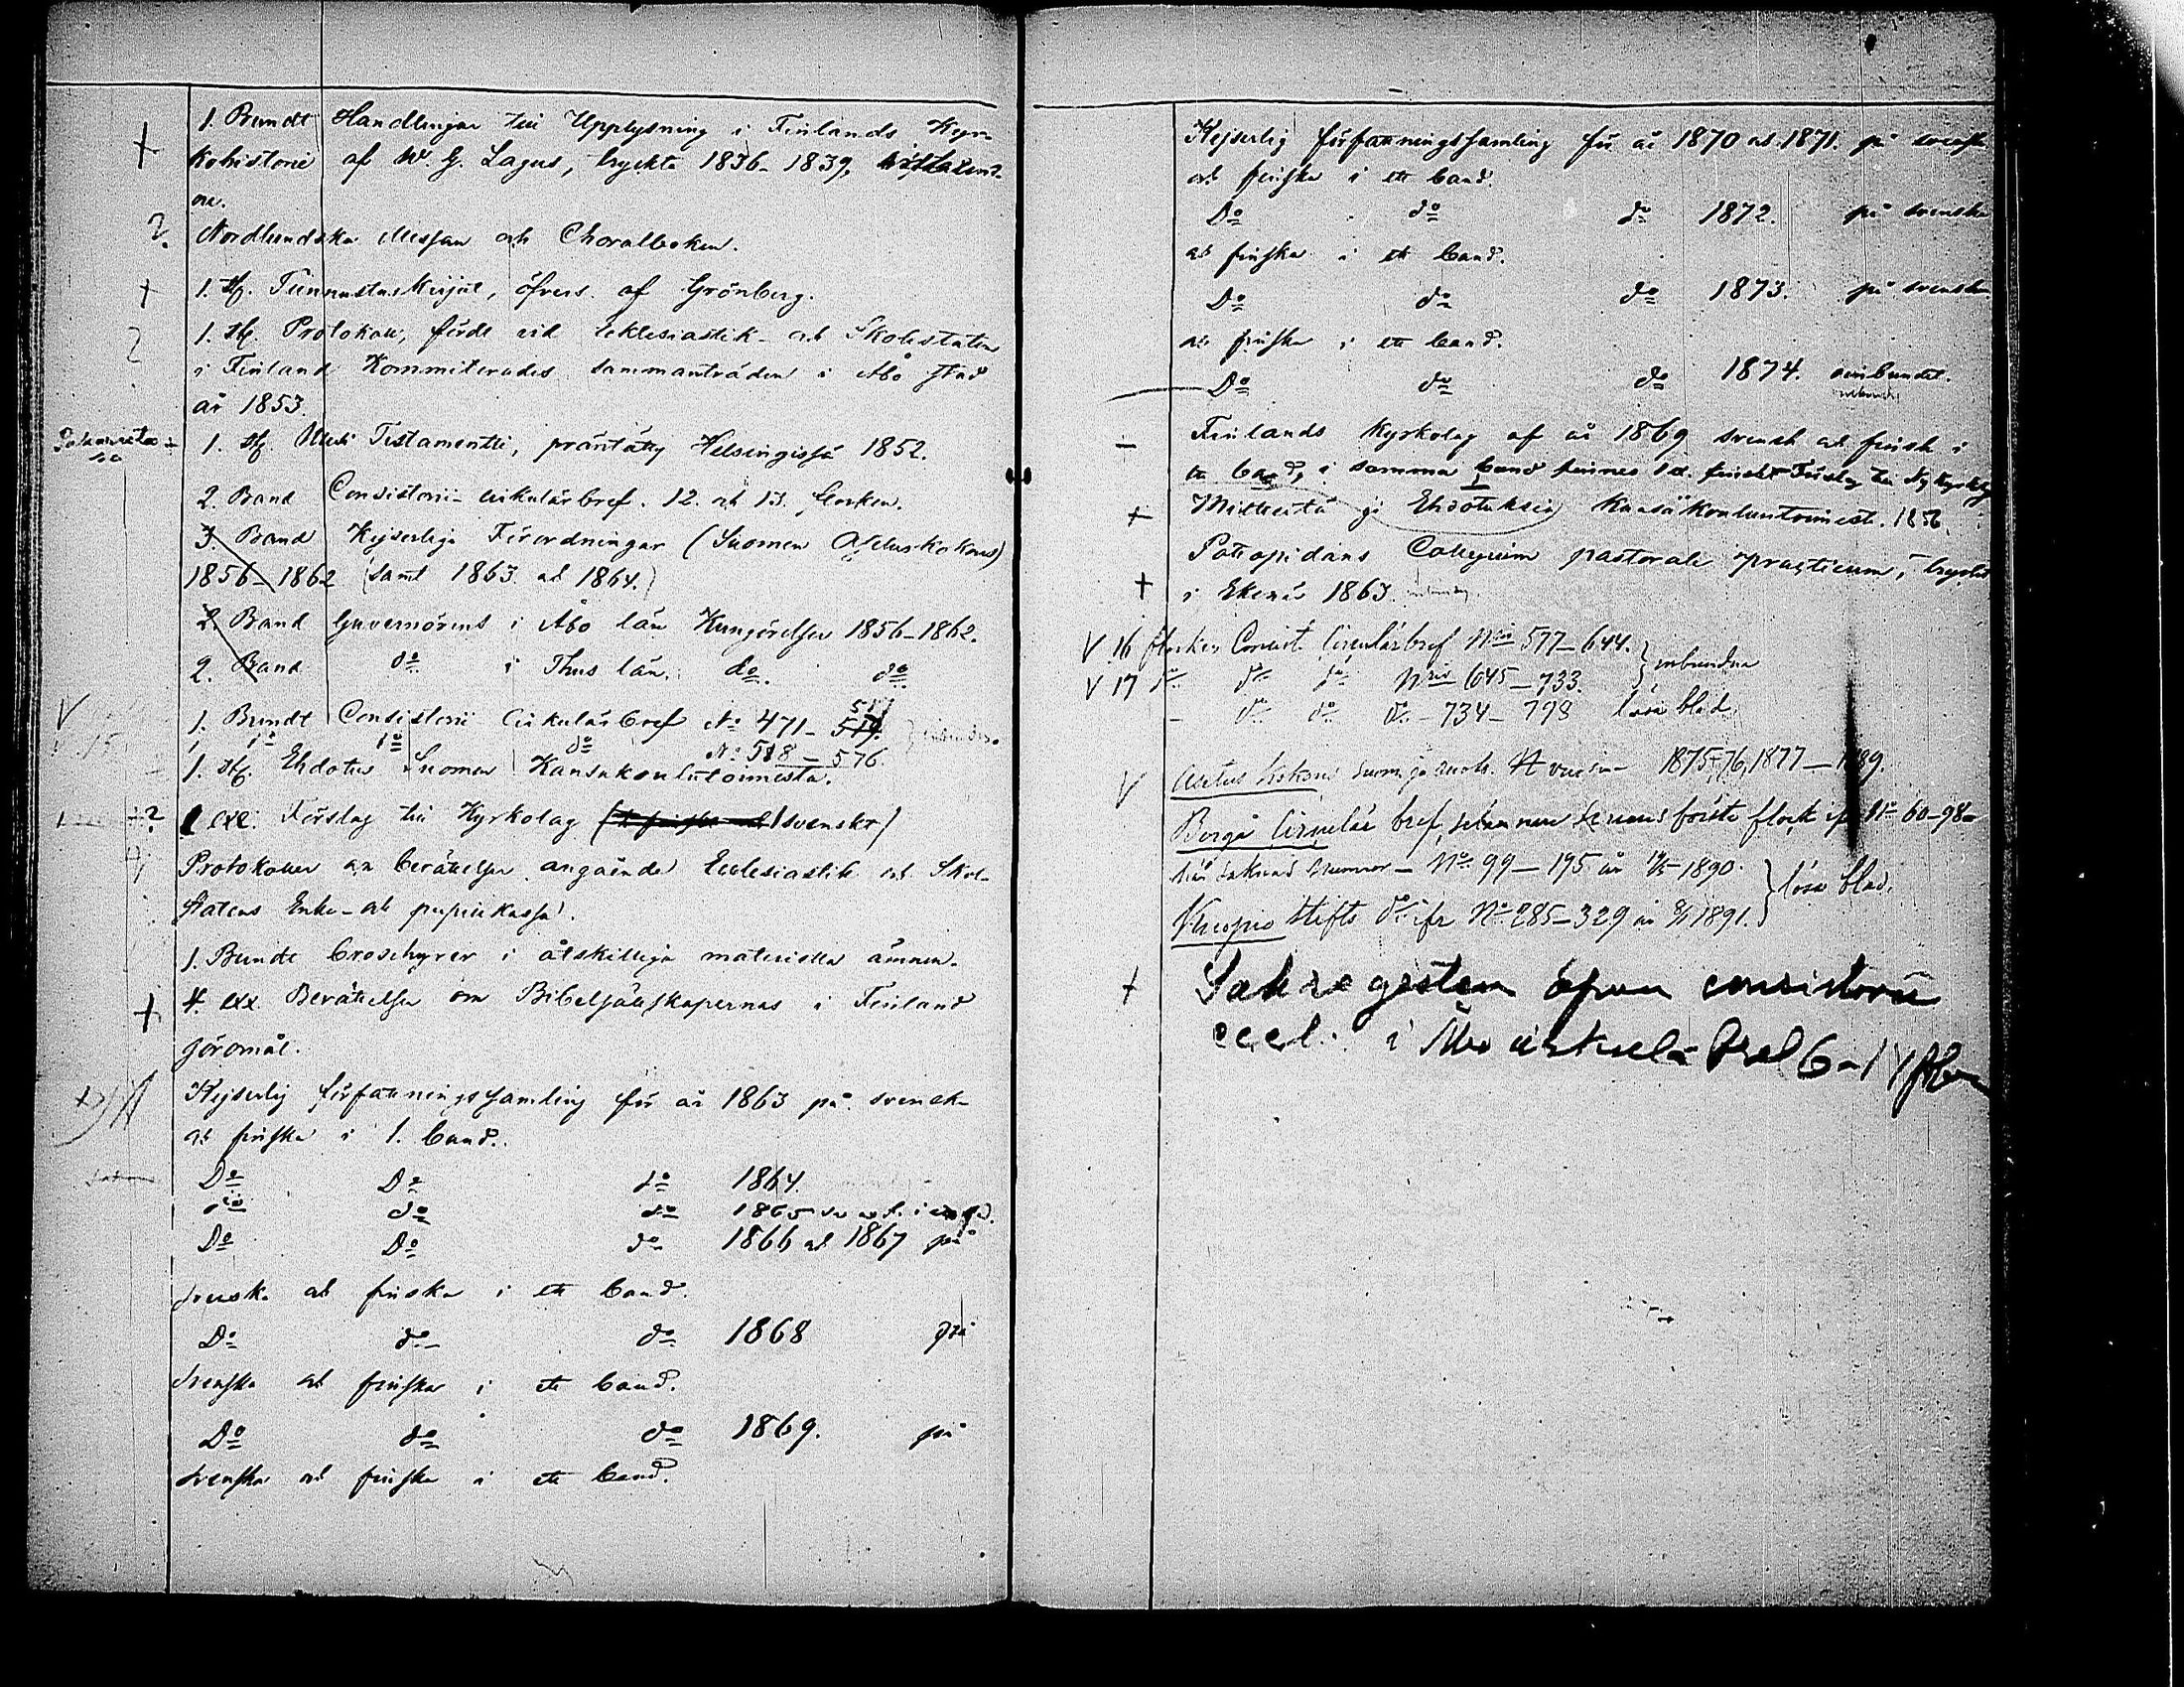 1. Bundt Handlingar till Upplysning i Finlands Kyr-
kohistorie af W. G. Lagus, tryckta 1836-1839,
ne.
2. Nordlundska Messan och Choralboken.
+ 1. st. Tunnustus Kirjat, öfvers. af Grönberg.
1. st. Protokoll, fördt vid Ecklesiastik- och Skolestaten
i Finland Kommiterades sammanträden i Åbo stad
år 1853.
1. st. Uusi Testamentti, präntätty Helsingissä 1852.
2. Band Consistorii cirkulärbref. 12. och 13. flocken.
3. Band Kejserliga Förordningar (Suomen Asetus-kokous)
1856-1862 (samt 1863 och 1864.)
2. Band Guvernörens i Åbo län Kungörelser 1856-1862.
2. Band do i Thus län. do. do
V 1. Bundt Consistorii Cirkulärbref No 471-517.
1 do do do No 518-576.
1. st. Ehdotus Suomen Kansakoulutoimesta.
? 1 exx. Förslag till Kyrkolag (svenskt)
Protokoller och berättelser angående Ecclesiastik och Skol-
statens Enke- och pupillkassa.
1. Bundt broschyrer i åtskilliga materiella ämnen.
+ 4. exx Berättelser om Bibelsällskapernas i Finland
göromål.
Kejserlig författningssamling för år 1863 på svensk-
och finska i 1. band.
Do Do do 1864.
do do do 1865
Do Do do 1866 och 1867 på
svenska och finska i ett band.
Do do do 1868 på
svenska och finska i ett band.
Do do do 1869. på
svenska och finska i ett band.
Kejserlig författningssamling för år 1870 och 1871. på svenska
och finska i ett band.
Do do do 1872. på svenska
och finska i ett band.
Do do do 1873. på svenska
och finska i ett band.
Do do do 1874. oinbundet.
- Finlands Kyrkolag af år 1869 svensk och finsk i
ett band, i samma band finnes Förslag till Ny Kyrkolag
+ Mietteitä ja Ehdotuksia Kansakouluntoimesta. 1856.
Pontoppidans Collegium pastorale practicum, tryckt
+ i Ekenäs 1863.
V 16 flocken Consist. Cirkulärbref Nris 577-644. } inbundna
V 17 do do do Nris 645-733.
- do do do - 734-798 lösa blad
V Asetus kokous suom. ja ruots. 1875-76, 1877-1889.
Borgå Cirkulär bref, första flock No 60-98
här saknas nummer - No 99-195 år 1890. } lösa blad.
Kuopio Stifts do ifr No 285-329 år 1891.
+ Sakregister öfver consistorii
eccl. i Åbo cirkulärbref 6-14